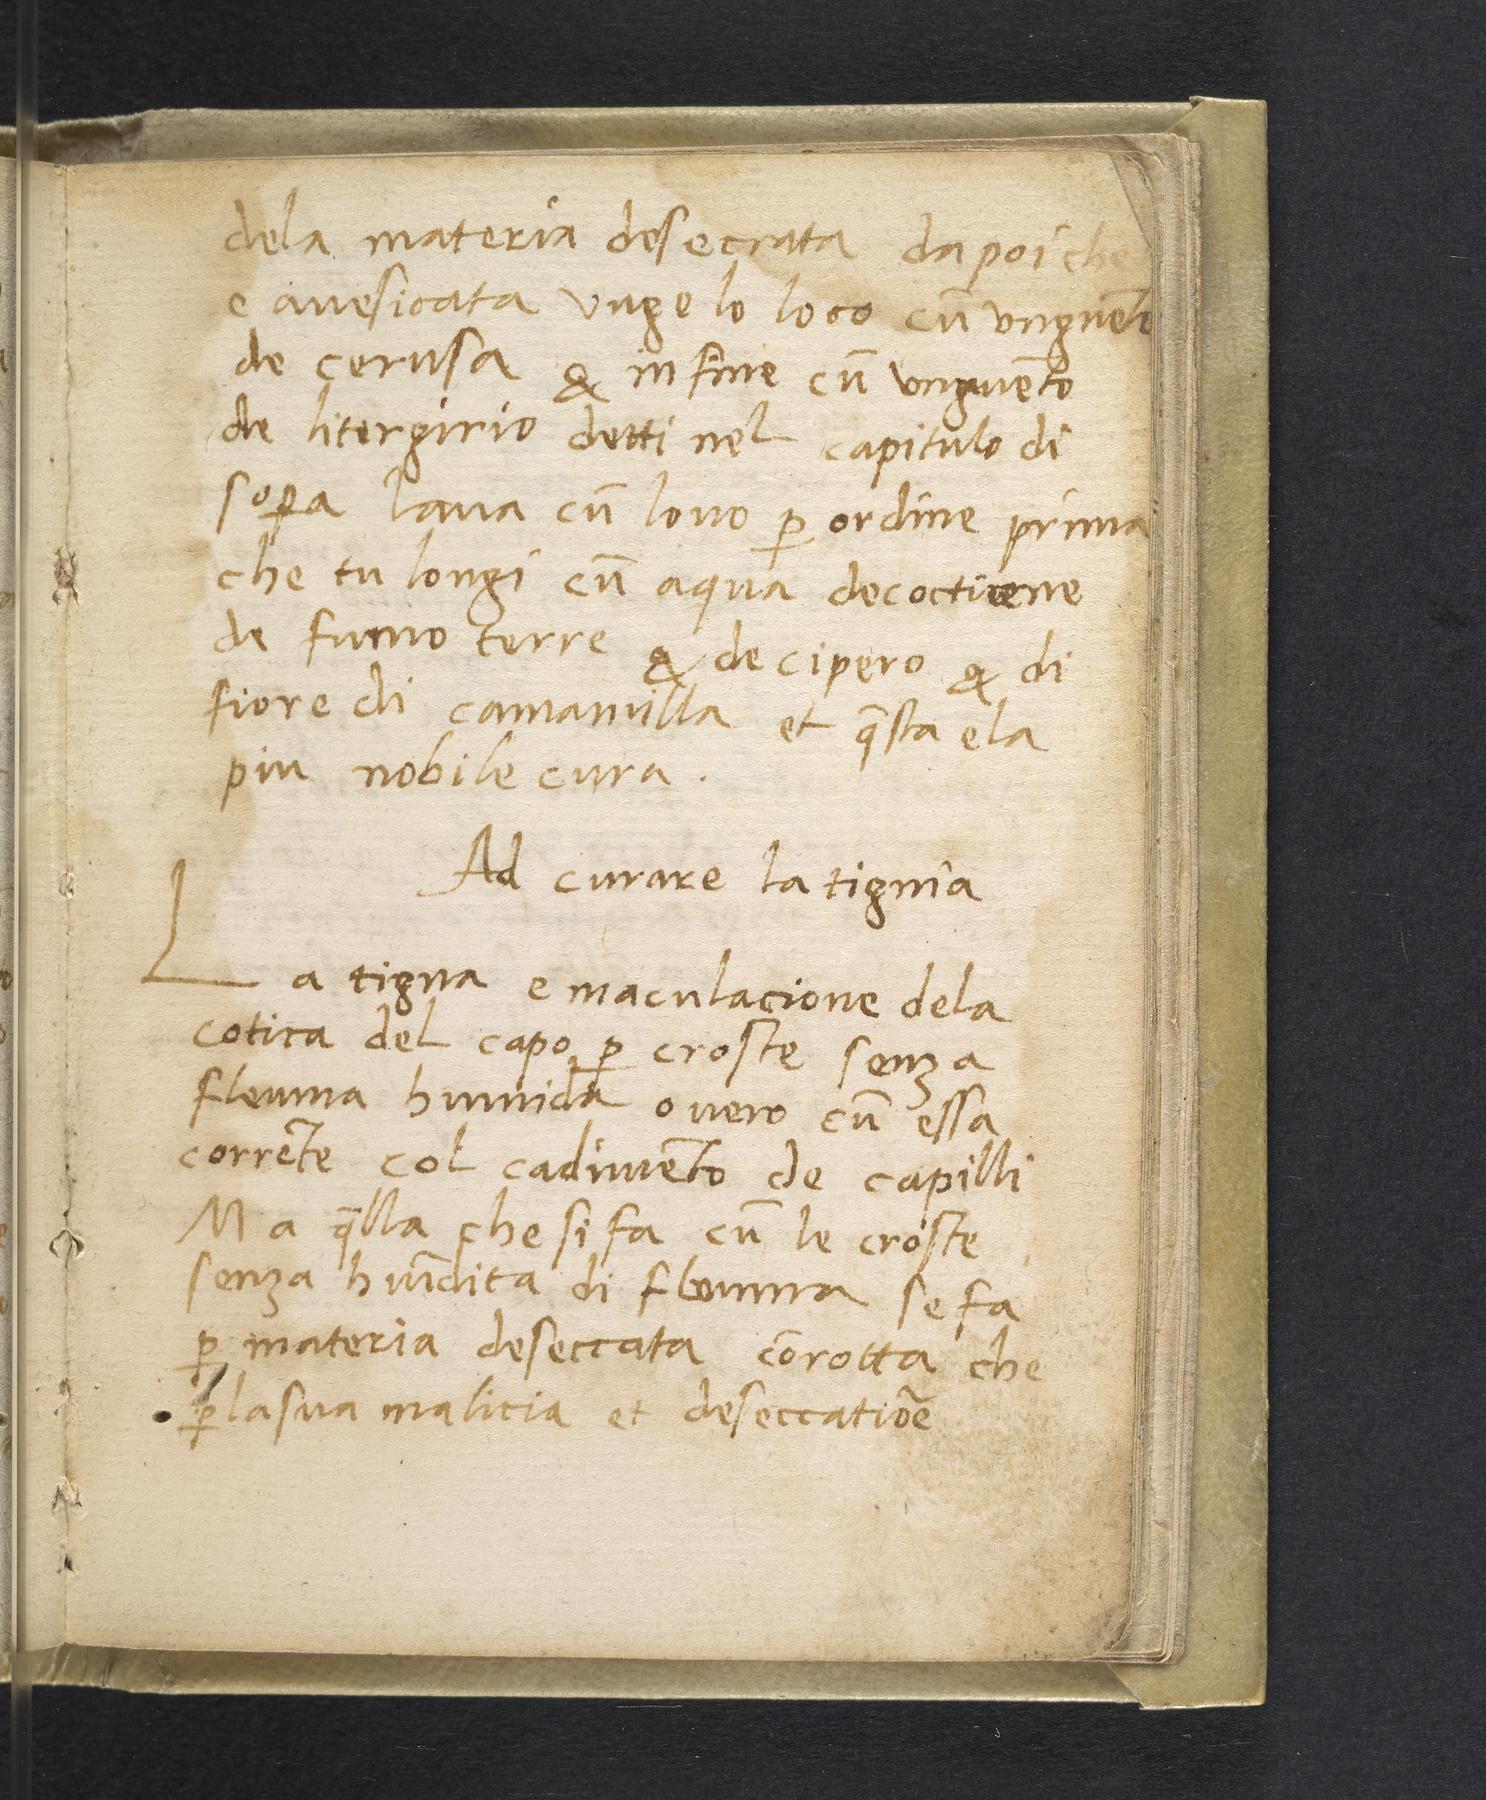 dela materia desecrata dapoi che
e auesicata unge lo loco cū vnguēto
de cerusa & in fine cū vnguēto
de litergirio detti nel capitulo di
sop̄a laua cū louo p̱ ordine prima
che tu longi cū aqua decoctione
de fumo terre & de cipero & di
fiore di camamilla et q̄sta ela
piu nobile cura .
Ad curare la tignia
La tigna e maculacione dela
cotica del capo p̱ croste senza
fleuma humida o uero cū essa
corrēte col cadimēto de capilli
Ma q̄lla che si fa cū le croste
senza hum̄dita di fleumma se fa
p̱ materia deseccata cōrotta che
p̱ la sua malicia et deseccatiōe